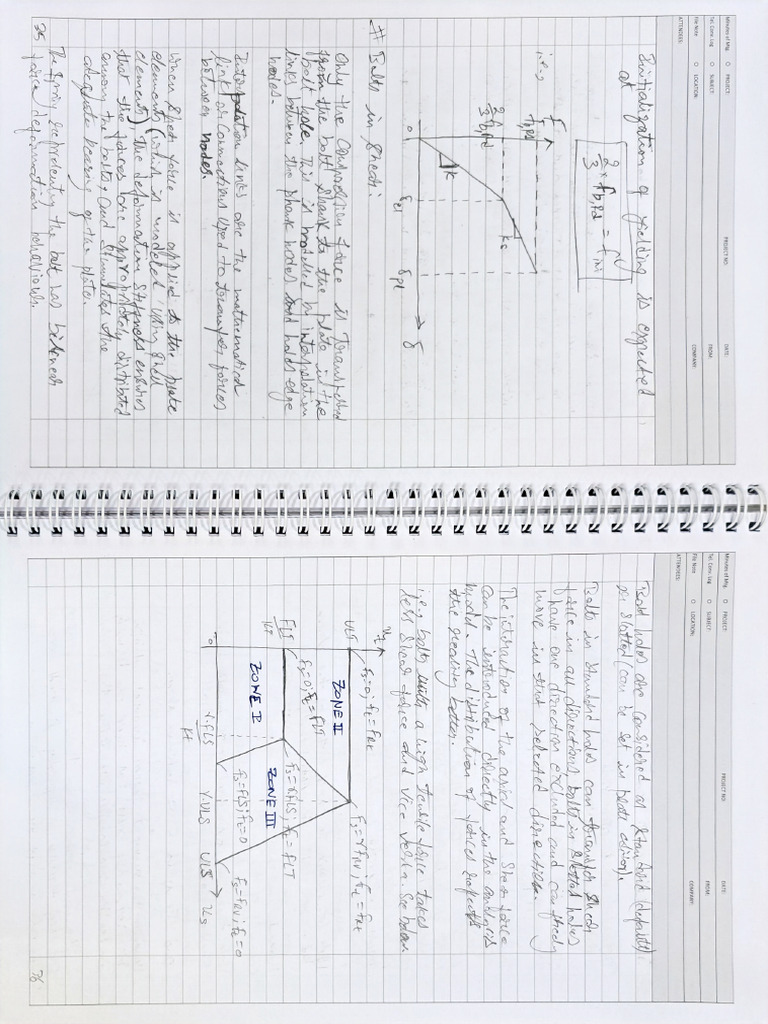 Minutes of Mtg.
PROJECT:
PROJECT NO:
DATE:
Tel. Conv. Log
SUBJECT:
FROM:
File Note
LOCATION:
COMPANY:
ATTENDEES:
Initialization of yielding is expected
at
2/3 × Fb,Rd = Fini
i.e.,
F
Fb,Rd
2/3 Fb,Rd
K
Ks
0
δel
δpl
δ
# Bolts in Shear:
Only the Compression force is transferred
from the bolt shank to the plate in the
bolt hole. This is modelled by interpolation
links between the shank nodes and holes edge
nodes.
Interpolation links are the mathematical
links or connections used to transfer forces
between nodes.
When Shear force is applied to the plate
elements (which is modeled using shell
elements), the deformation stiffness ensures
that the forces are appropriately distributed
among the bolts, and simulates the
adequate bearing of the plate.
The spring representing the bolt has bilinear
force deformation behaviour.
75
Minutes of Mtg.
PROJECT:
PROJECT NO:
DATE:
Tel. Conv. Log
SUBJECT:
FROM:
File Note
LOCATION:
COMPANY:
ATTENDEES:
Bolt holes are considered as standard (default)
or slotted (can be set in plate editor).
Bolts in standard holes can transfer shear
force in all directions, bolts in slotted holes
have one direction excluded and can freely
move in that selected direction.
The interaction of the axial and Shear force
can be introduced directly in the analysis
model. The distribution of forces reflects
the reality better.
i.e., bolts with a high tensile force takes
less shear force and vice versa. See below
ut
ULT
Fs=0; Ft=FRt
Fs=γFRV; Ft=FRt
ZONE II
FLT
kT
Fs=0; Ft=FLT
Fs=γFLS; Ft=FLT
ZONE I
ZONE III
Fs=FLS; Ft=0
Fs=FRV; Ft=0
0
γ·FLS
kt
γ·ULS
ULS
us
76